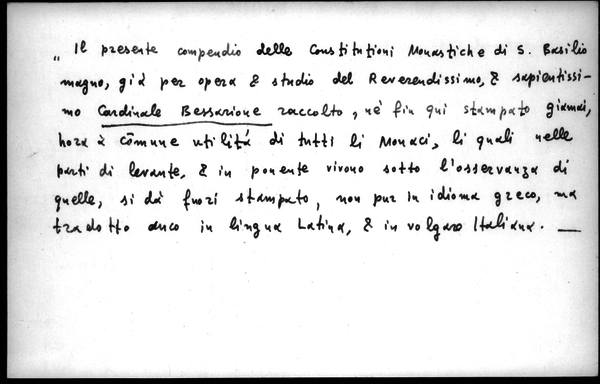 „ Il presente compendio delle Constitutioni Monastiche di S. Basilio
magno, già per opera & studio del Reverendissimo, & sapientissi-
mo Cardinale Bessarione raccolto, nè fin qui stampato giamai,
hora à cōmune utilità di tutti li Monaci, li quali nelle
parti di levante, & in ponente vivono sotto l'osservanza di
quelle, si dà fuori stampato, non pur in idioma greco, ma
tradotto anco in lingua Latina, & in volgare Italiana. —